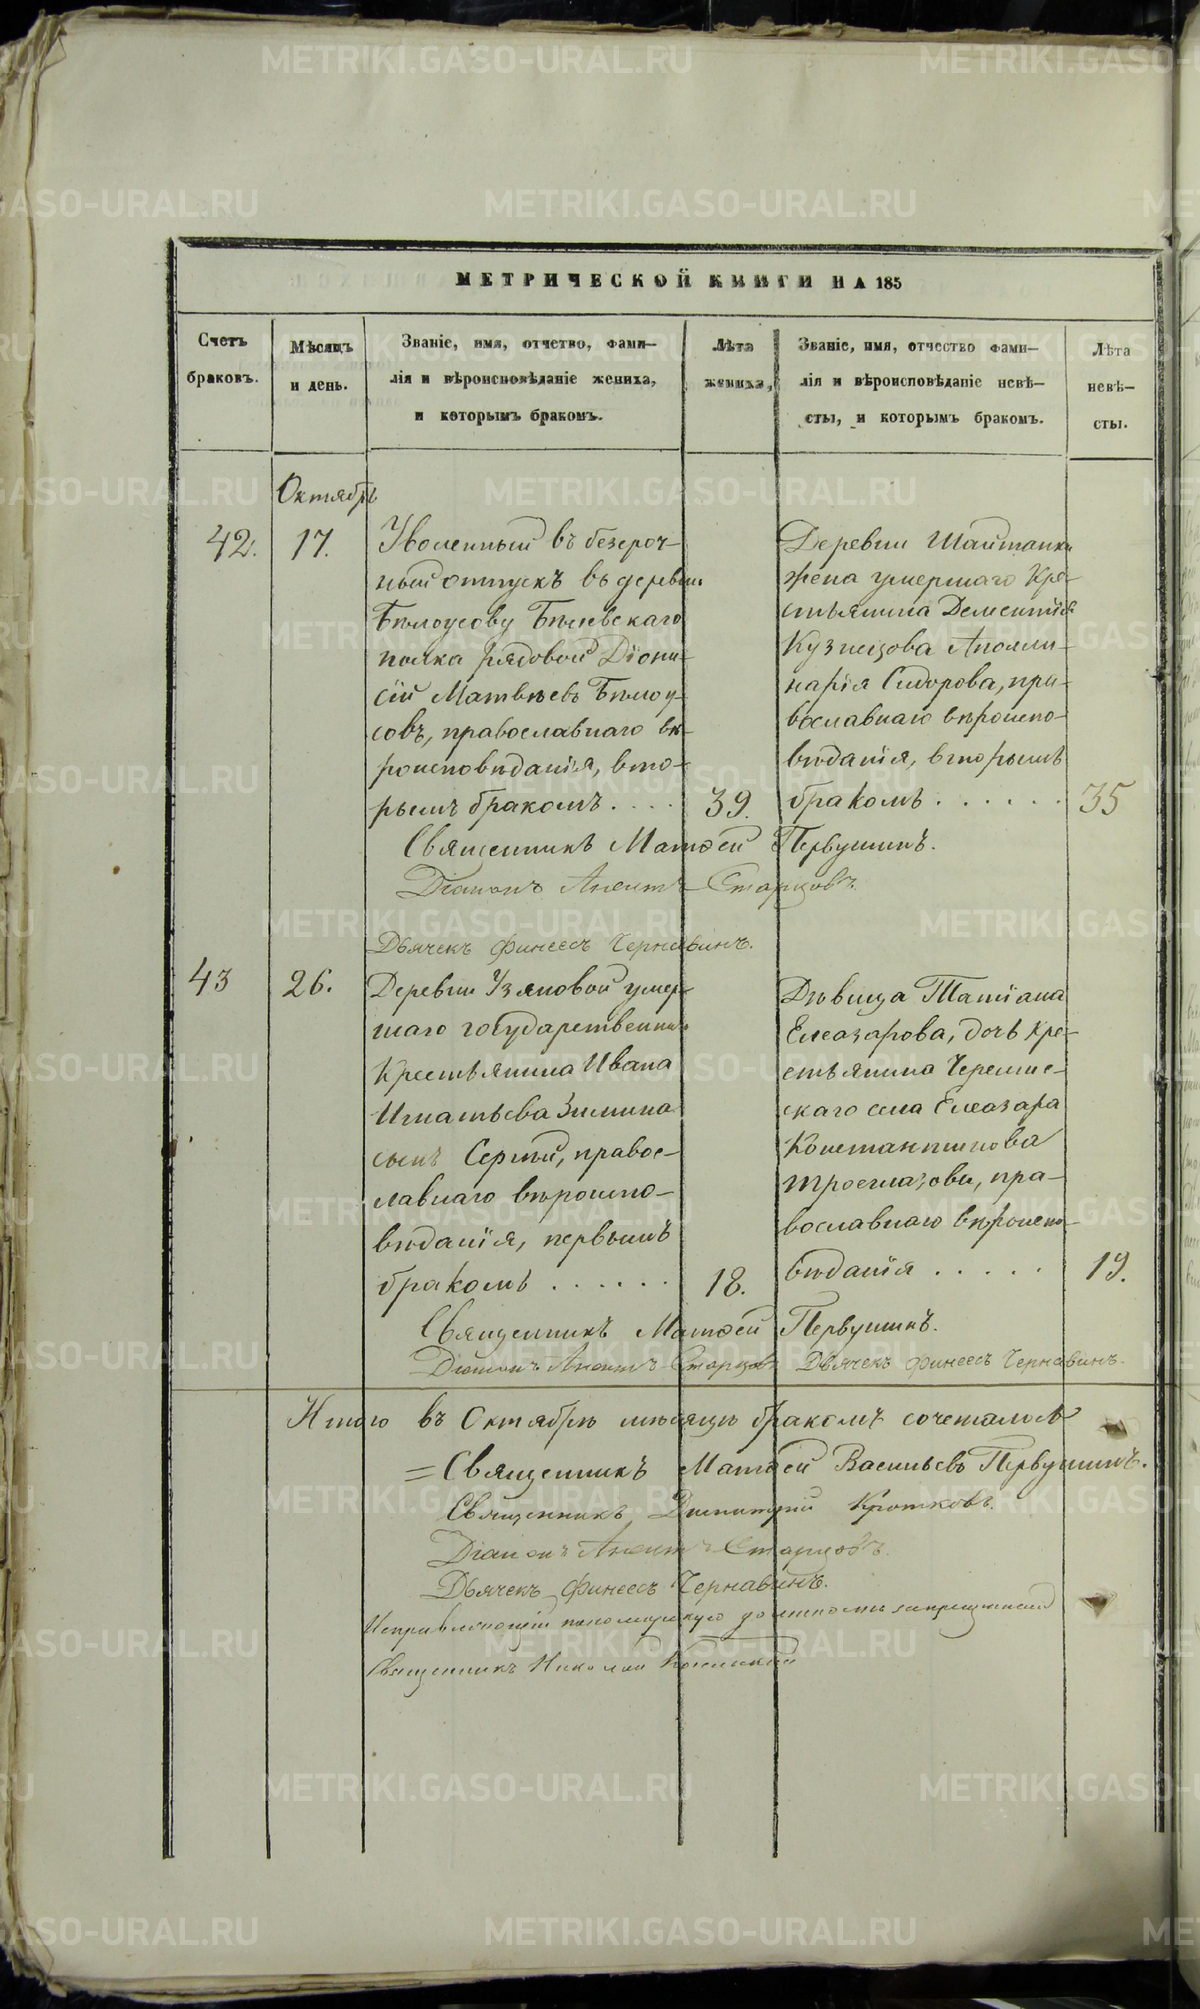 МЕТРИЧЕСКОЙ КНИГИ НА 185
Счетъ
браковъ.
Мѣсяцъ
и день.
Званіе, имя, отчетво, фами-
лія и вѣроисповѣданіе жениха,
и которымъ бракомъ.
Лѣта
жениха,
Званіе, имя, отчество фами-
лія и вѣроисповѣданіе невѣ-
сты, и которымъ бракомъ.
Лѣта
невѣ-
сты.
Октябрь
42.
17.
Уволенный въ безсроч-
ный отпускъ въ деревню
Бѣлоусову Бѣлевскаго
полка рядовой Діони-
сій Матвѣевъ Бѣлоу-
совъ, православнаго вѣ-
роисповѣданія, вто-
рымъ бракомъ....
39.
Деревни Шайтанки
жена умершаго кре-
стьянина Дементія
Кузнецова Аполли-
нарія Сидорова, пра-
вославнаго вѣроиспо-
вѣданія, вторымъ
бракомъ......
35
Священникъ Матѳей Первушинъ.
Діаконъ Старцовъ.
Дьячекъ Финеесъ Чернавинъ.
43
26.
Деревни Узяновой умер-
шаго государственнаго
крестьянина Ивана
Игнатьева Зимина
сынъ Сергій, правос-
лавнаго вѣроиспо-
вѣданія, первымъ
бракомъ......
18.
Дѣвица Татіана
Елеазарова, дочь кре-
стьянина Черемис-
скаго села Елеазара
Константинова
Троеглазова, пра-
вославнаго вѣроиспо-
вѣданія.....
19.
Священникъ Матѳей Первушинъ.
Діаконъ Старцовъ Дьячекъ Финеесъ Чернавинъ.
Итого въ Октябрѣ мѣсяцѣ бракомъ сочеталось
=Священникъ Матѳей Васильевъ Первушинъ.
Священникъ Димитрій Кротковъ.
Діаконъ Старцовъ.
Дьячекъ Финеесъ Чернавинъ.
должность запрещенный
Священникъ Николай